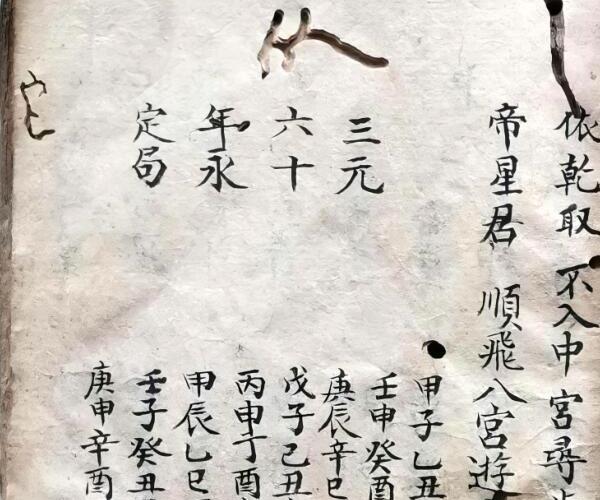 依乾取 不入中宮尋
帝星君 順飛八宮遊
三元
六十
年永
定局
甲子乙丑
壬申癸酉
庚辰辛巳
戊子己丑
丙申丁酉
甲辰乙巳
壬子癸丑
庚申辛酉